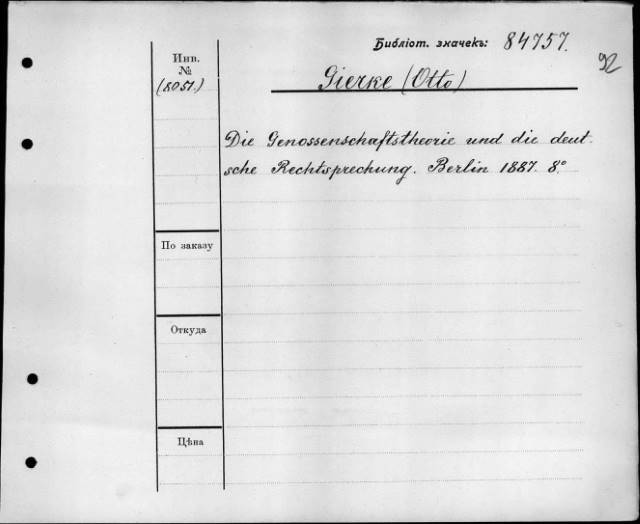 Библіот. значекъ: 84757.
92
Инв.
№
(8051.)
Gierke (Otto)
Die Genossenschaftstheorie und die deut-
sche Rechtsprechung. Berlin 1887. 8°.
По заказу
Откуда
Цѣна